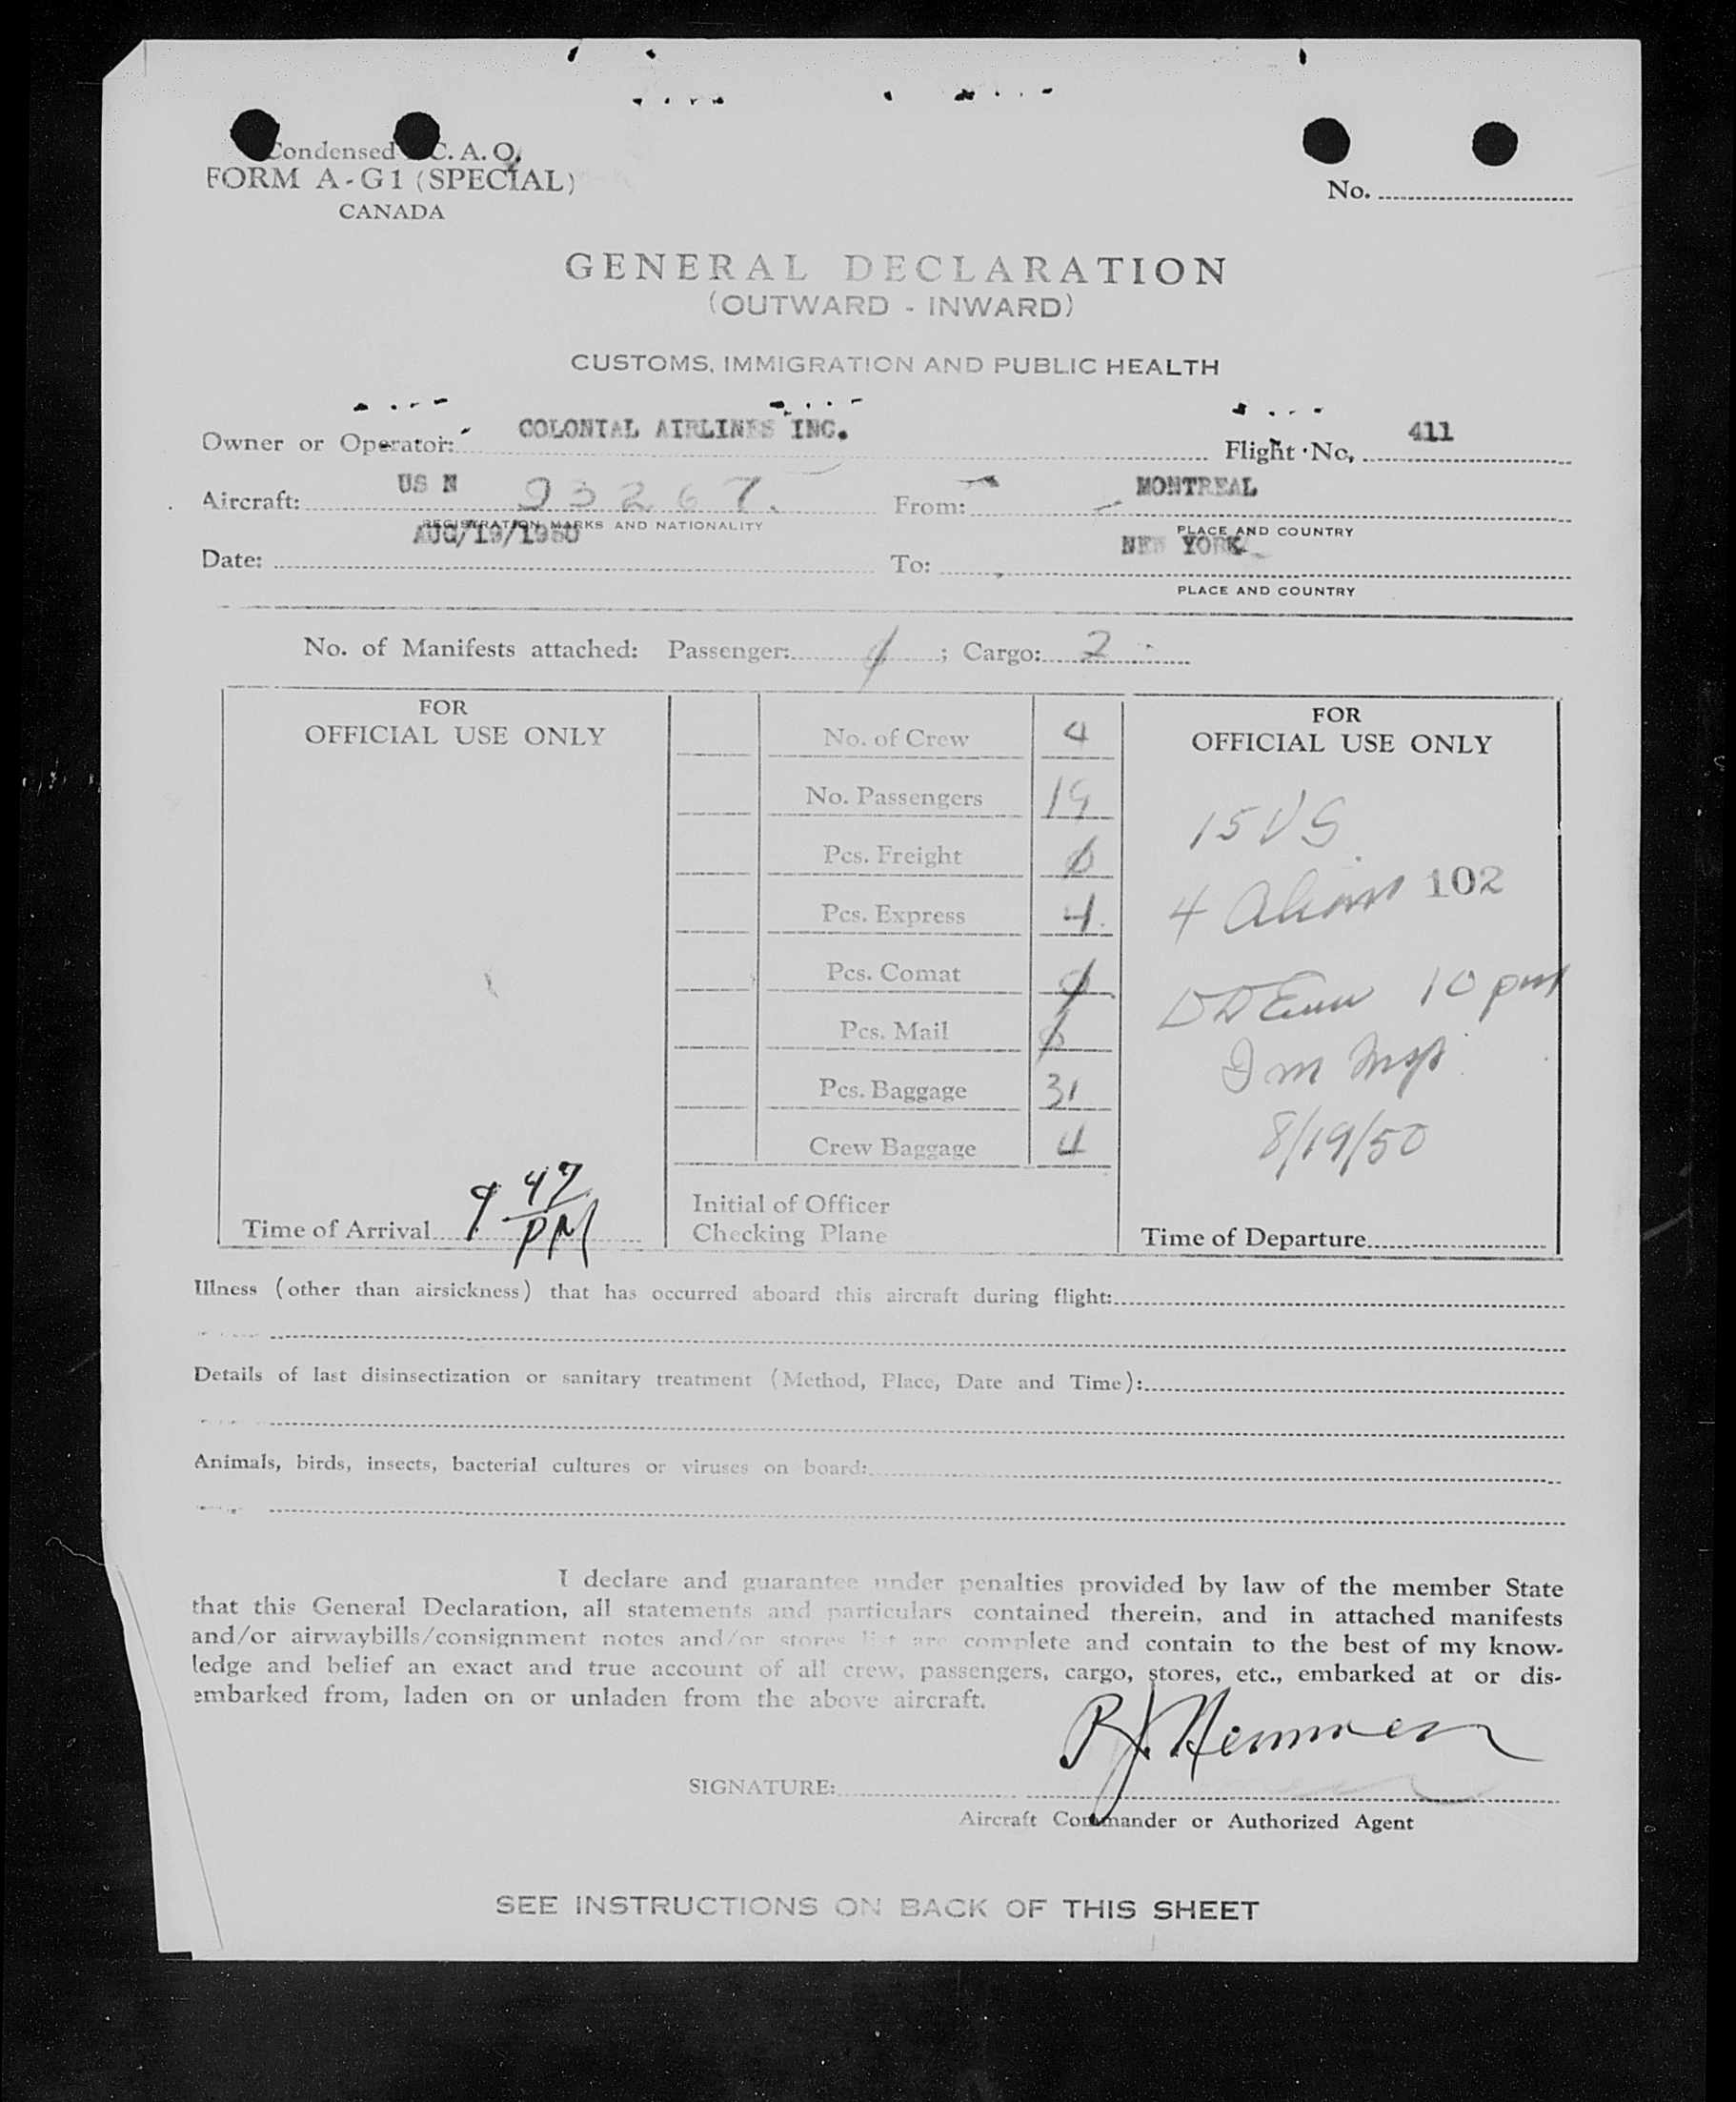 Condensed C. A. O.
FORM A-G1 (SPECIAL)
CANADA
No.
GENERAL DECLARATION
(OUTWARD - INWARD)
CUSTOMS, IMMIGRATION AND PUBLIC HEALTH
Owner or Operator: COLONIAL AIRLINES INC. Flight No. 411
Aircraft: US N 93267. From: MONTREAL
REGISTRATION MARKS AND NATIONALITY PLACE AND COUNTRY
Date: AUG/19/1950 To: NEW YORK
PLACE AND COUNTRY
No. of Manifests attached: Passenger: ; Cargo: 2
FOR
OFFICIAL USE ONLY
Time of Arrival 9 47 PM
No. of Crew 4
No. Passengers 19
Pcs. Freight 0
Pcs. Express 4
Pcs. Comat 0
Pcs. Mail 0
Pcs. Baggage 31
Crew Baggage 4
Initial of Officer
Checking Plane
FOR
OFFICIAL USE ONLY
15 US
4 Aliens 102
10 pm
Im Insp
8/19/50
Time of Departure
Illness (other than airsickness) that has occurred aboard this aircraft during flight:
Details of last disinsectization or sanitary treatment (Method, Place, Date and Time):
Animals, birds, insects, bacterial cultures or viruses on board:
I declare and guarantee under penalties provided by law of the member State
that this General Declaration, all statements and particulars contained therein, and in attached manifests
and/or airwaybills/consignment notes and/or stores list are complete and contain to the best of my know-
ledge and belief an exact and true account of all crew, passengers, cargo, stores, etc., embarked at or dis-
embarked from, laden on or unladen from the above aircraft.
SIGNATURE:
Aircraft Commander or Authorized Agent
SEE INSTRUCTIONS ON BACK OF THIS SHEET